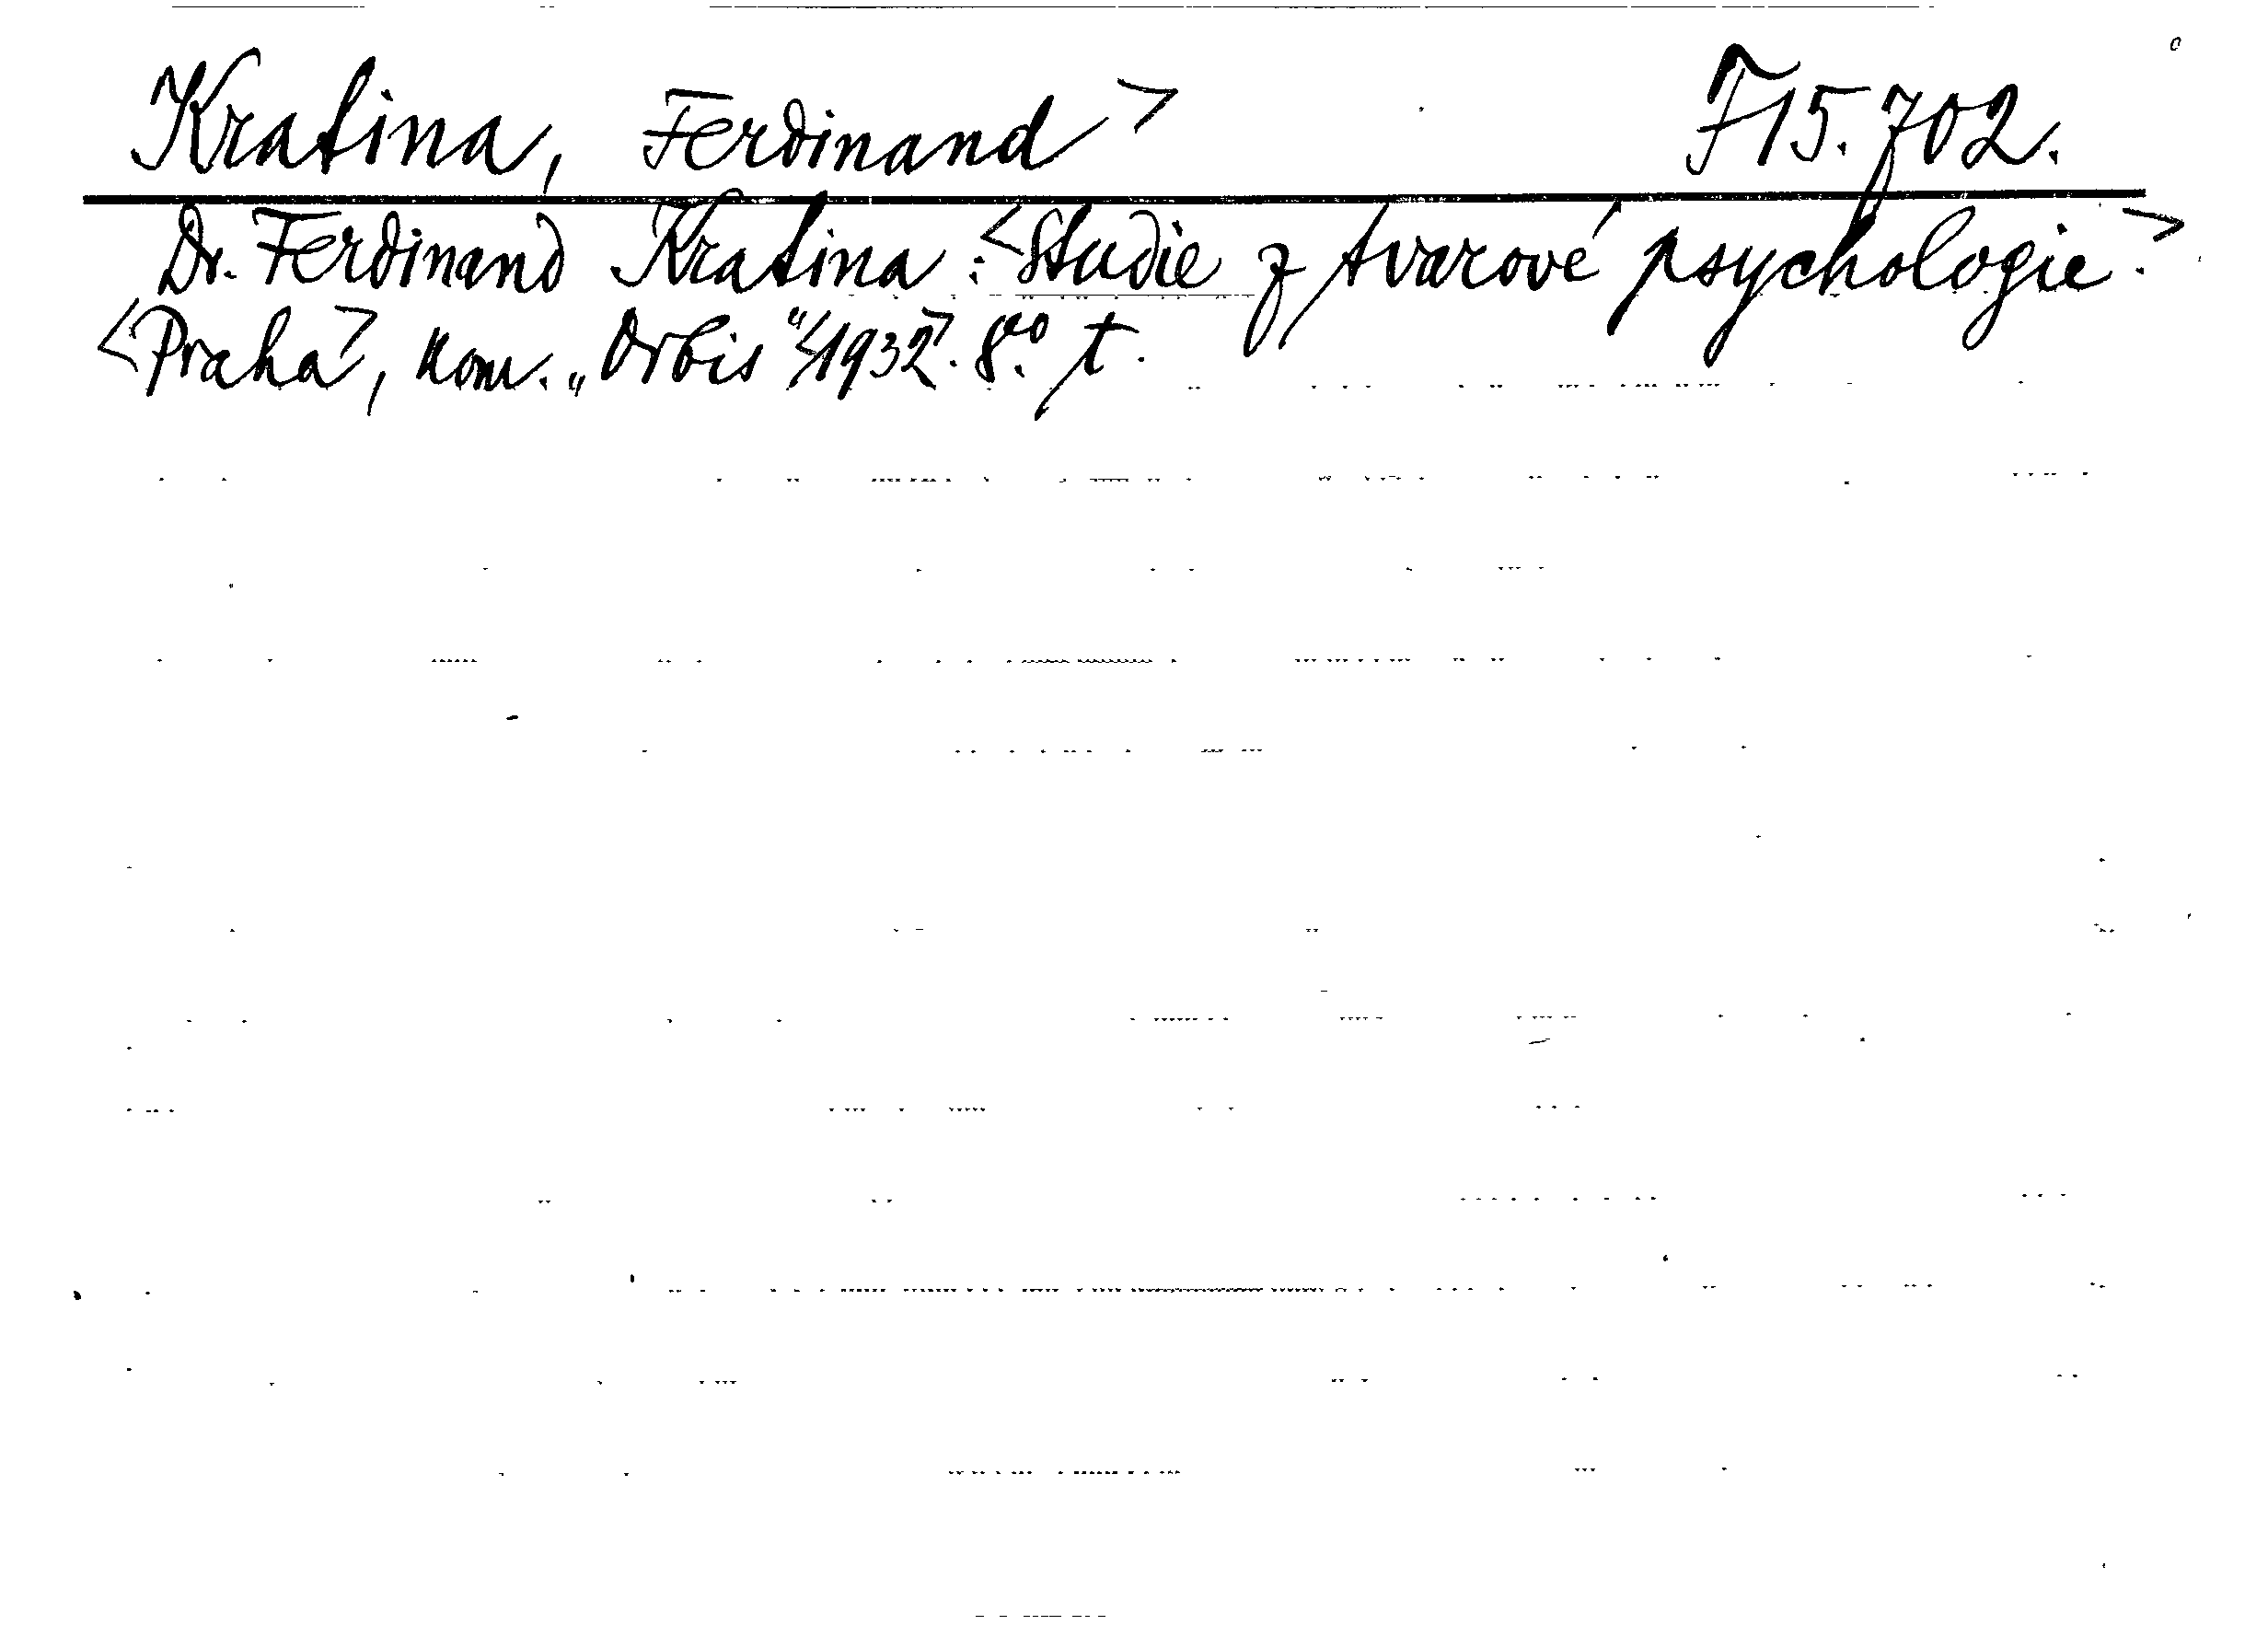 Kratina, Ferdinand> F 15.702.
Dr. Ferdinand Kratina: <Studie z tvarové psychologie.>
<Praha>, kom. „Orbis“ <1932>. 8.º t.